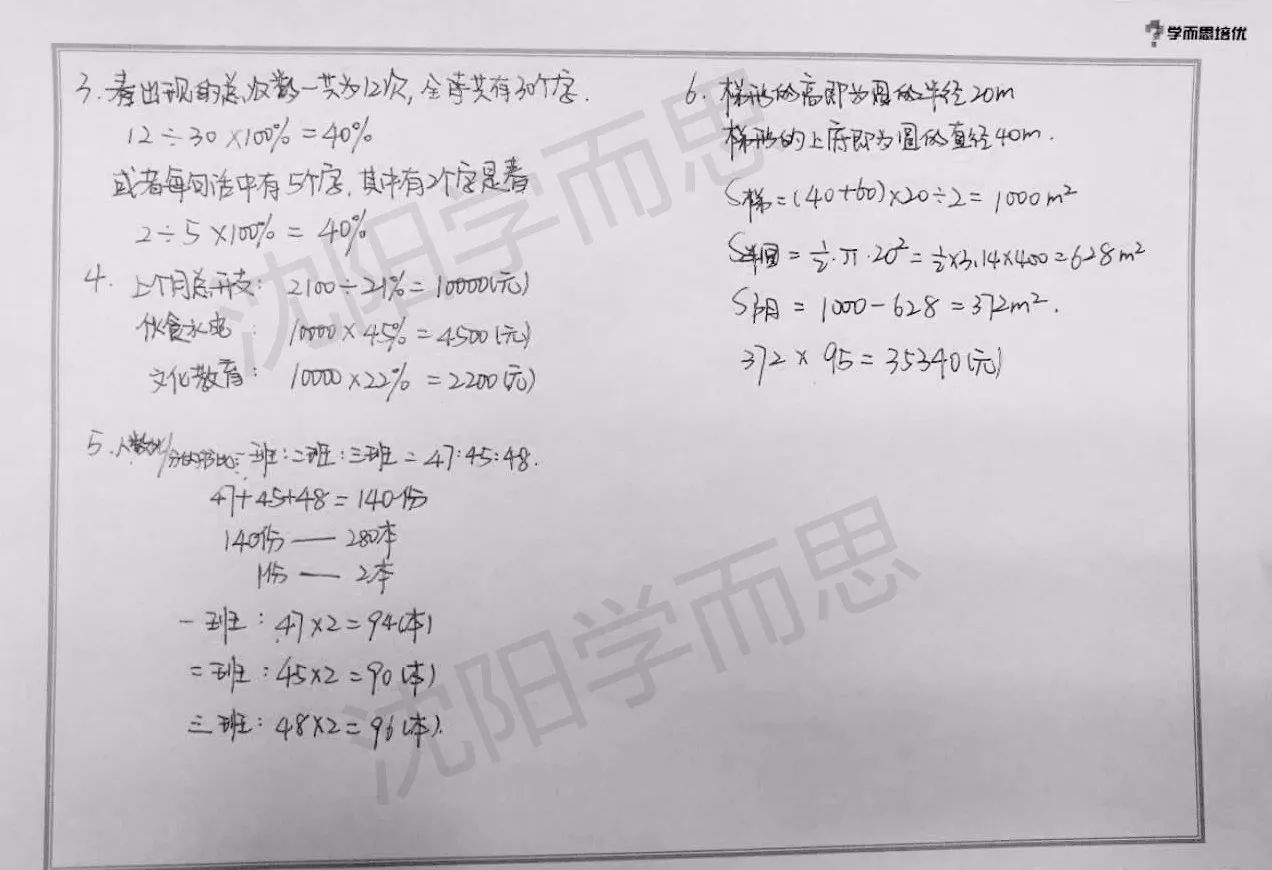 学而思培优
3. 春出现的总次数一共为12次, 全诗共有30个字.
12÷30×100%=40%
或者每句话中有5个字, 其中有2个字是春
2÷5×100%=40%
4. 上个月总开支: 2100÷21%=10000(元)
伙食水电: 10000×45%=4500(元)
文化教育: 10000×22%=2200(元)
5. 人数比/分的书比: 一班:二班:三班=47:45:48.
47+45+48=140份
140份——280本
1份——2本
一班: 47×2=94(本)
二班: 45×2=90(本)
三班: 48×2=96(本).
6. 梯形的高即为圆的半径20m
梯形的上底即为圆的直径40m.
S梯=(40+60)×20÷2=1000m²
S半圆=½·π·20²=½×3.14×400=628m²
S阴=1000-628=372m².
372×95=35340(元)
沈阳学而思
沈阳学而思